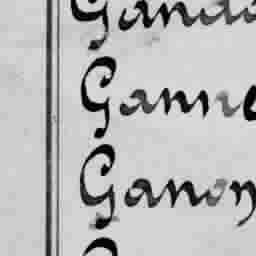 Ganda
Canne
Ganon